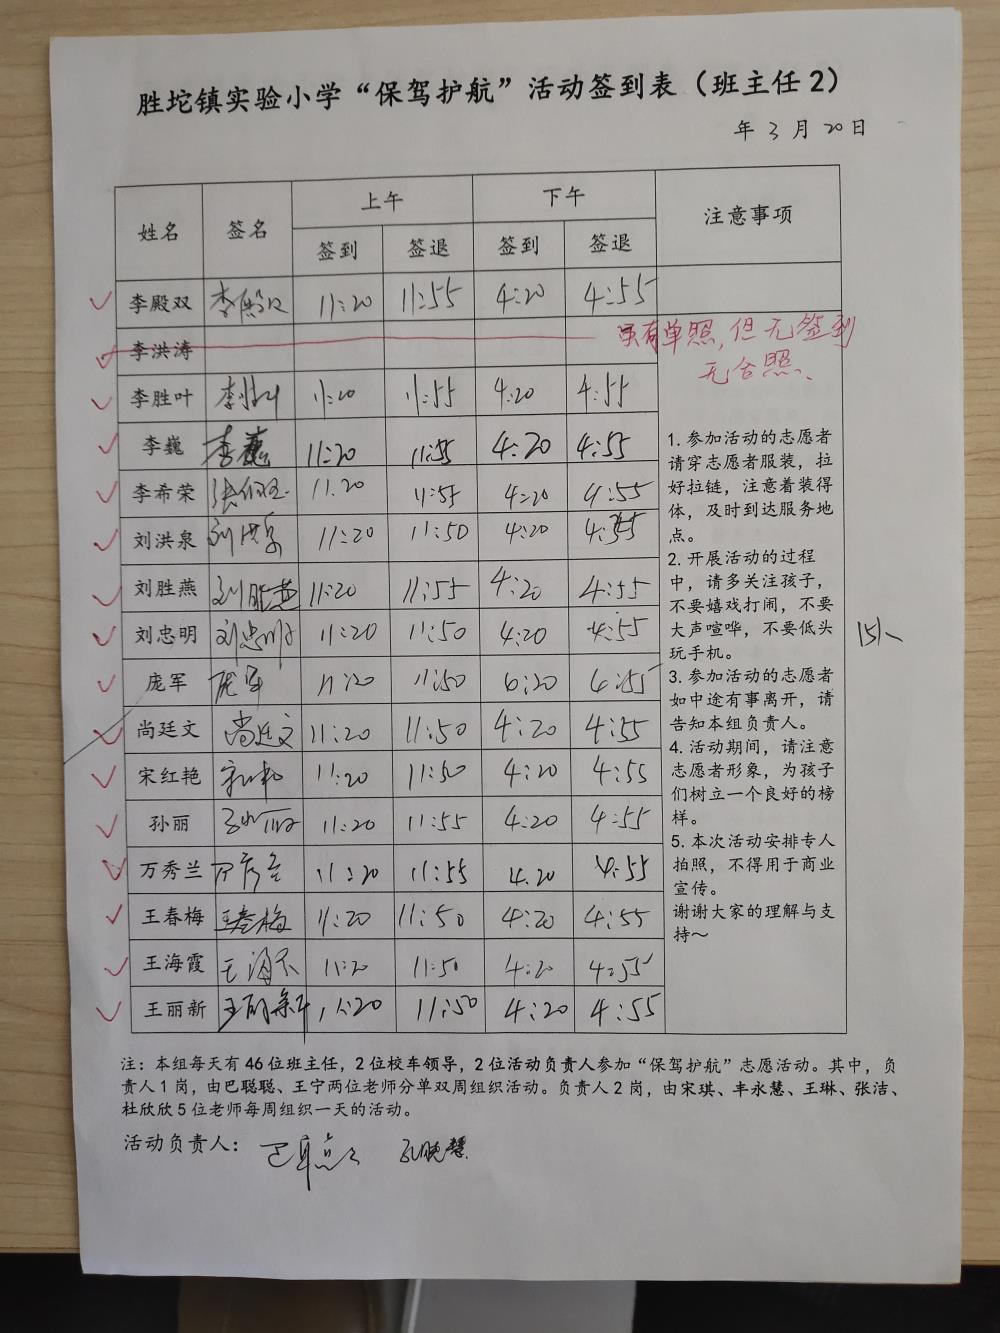 胜坨镇实验小学“保驾护航”活动签到表（班主任2）
年 3 月 20 日
姓名 签名 上午 下午 注意事项
签到 签退 签到 签退
李殿双 李殿双 11:20 11:55 4:20 4:55
李洪涛
虽有单照，但无签到
无合照、
李胜叶 11:20 11:55 4:20 4:55
李巍 李巍 11:20 11:55 4:20 4:55
李希荣 11.20 11:55 4:20 4:55
刘洪泉 刘洪泉 11:20 11:50 4:20 4:55
刘胜燕 刘胜燕 11:20 11:55 4:20 4:55
刘忠明 刘忠明 11:20 11:50 4:20 4:55
庞军 庞军 11:20 11:50 6:20 6:55
尚廷文 尚廷文 11:20 11:50 4:20 4:55
宋红艳 11:20 11:50 4:20 4:55
孙丽 孙丽 11:20 11:55 4:20 4:55
万秀兰 万秀兰 11:20 11:55 4.20 4:55
王春梅 王春梅 11:20 11:50 4:20 4:55
王海霞 王海霞 11:20 11:50 4:20 4:55
王丽新 王丽新 11:20 11:50 4:20 4:55
1. 参加活动的志愿者
请穿志愿者服装，拉
好拉链，注意着装得
体，及时到达服务地
点。
2. 开展活动的过程
中，请多关注孩子，
不要嬉戏打闹，不要
大声喧哗，不要低头
玩手机。
3. 参加活动的志愿者
如中途有事离开，请
告知本组负责人。
4. 活动期间，请注意
志愿者形象，为孩子
们树立一个良好的榜
样。
5. 本次活动安排专人
拍照，不得用于商业
宣传。
谢谢大家的理解与支
持～
15人
注：本组每天有 46 位班主任，2 位校车领导，2 位活动负责人参加“保驾护航”志愿活动。其中，负
责人 1 岗，由巴聪聪、王宁两位老师分单双周组织活动。负责人 2 岗，由宋琪、丰永慧、王琳、张洁、
杜欣欣 5 位老师每周组织一天的活动。
活动负责人：巴聪聪